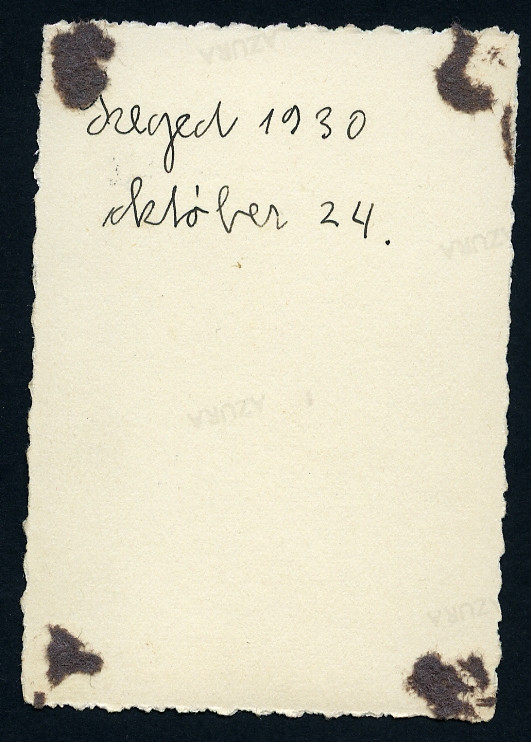 AZURA
Szeged 1930
október 24.
AZURA
AZURA
AZURA